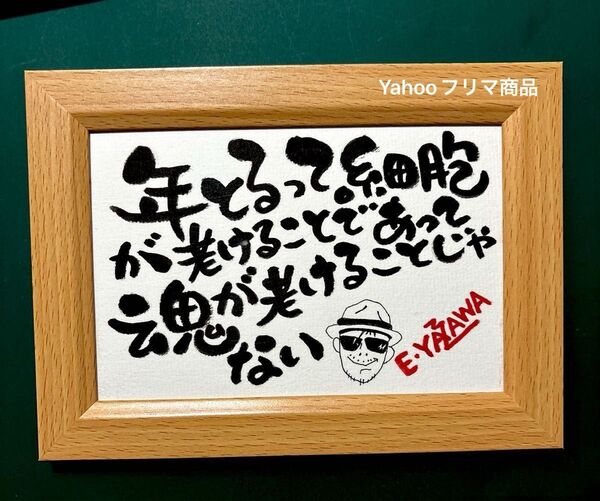 Yahooフリマ商品
年とるって。細胞
が老けることであって
魂が老けることじゃ
ない
E.YAZAWA